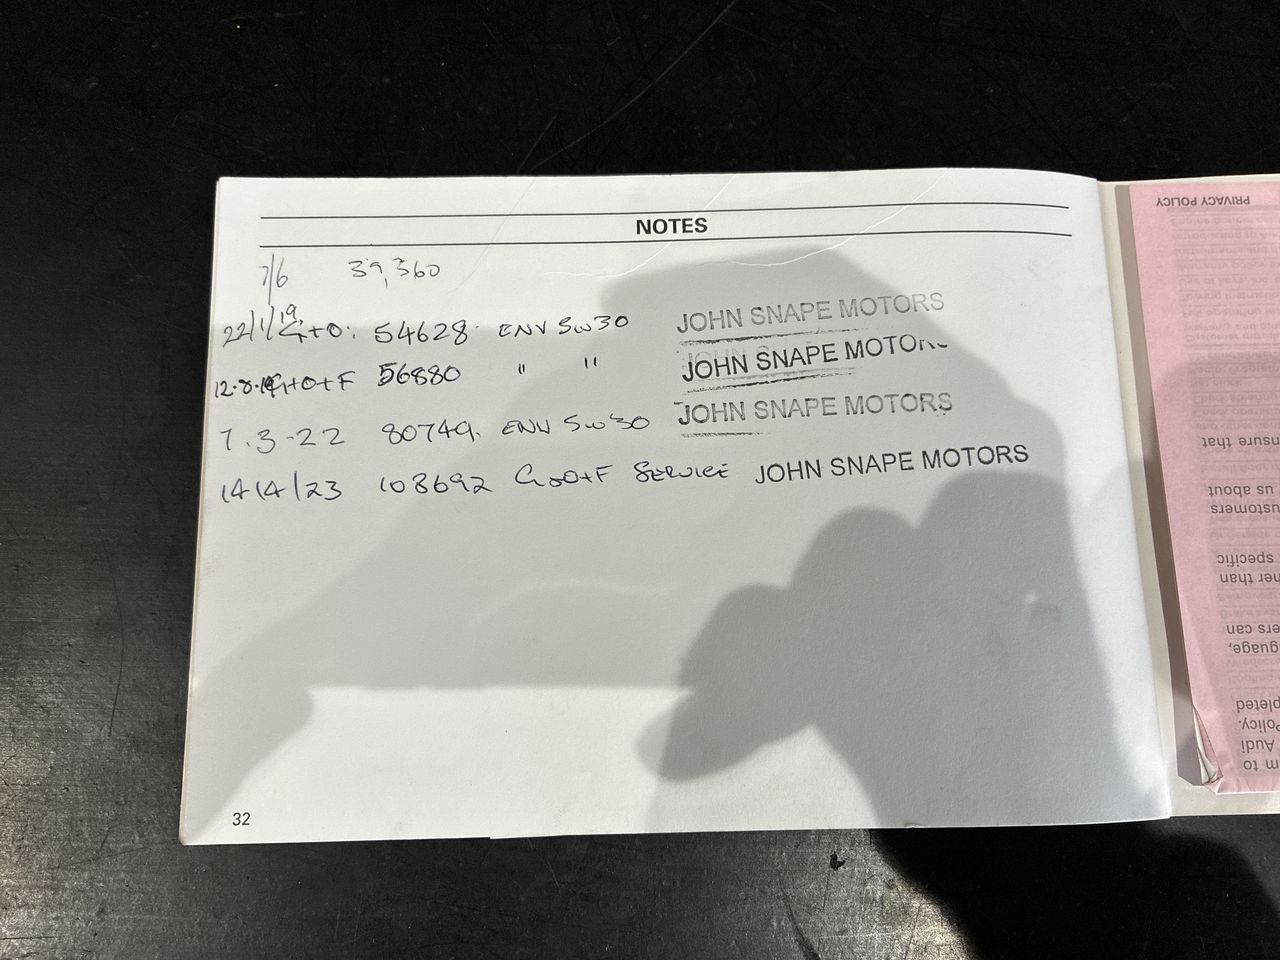 NOTES
7/6 39,360
22/1/19 G+O. 54628. ENV 5W30 JOHN SNAPE MOTORS
12.8.19 G+O+F 56880 " " JOHN SNAPE MOTORS
7.3.22 80749. ENV 5W30 JOHN SNAPE MOTORS
14/4/23 108692 GO+F SERVICE JOHN SNAPE MOTORS
32
PRIVACY POLICY
nsure that
us about
ustomers
specific
her than
ers can
guage,
pleted
Policy.
Audi
m to